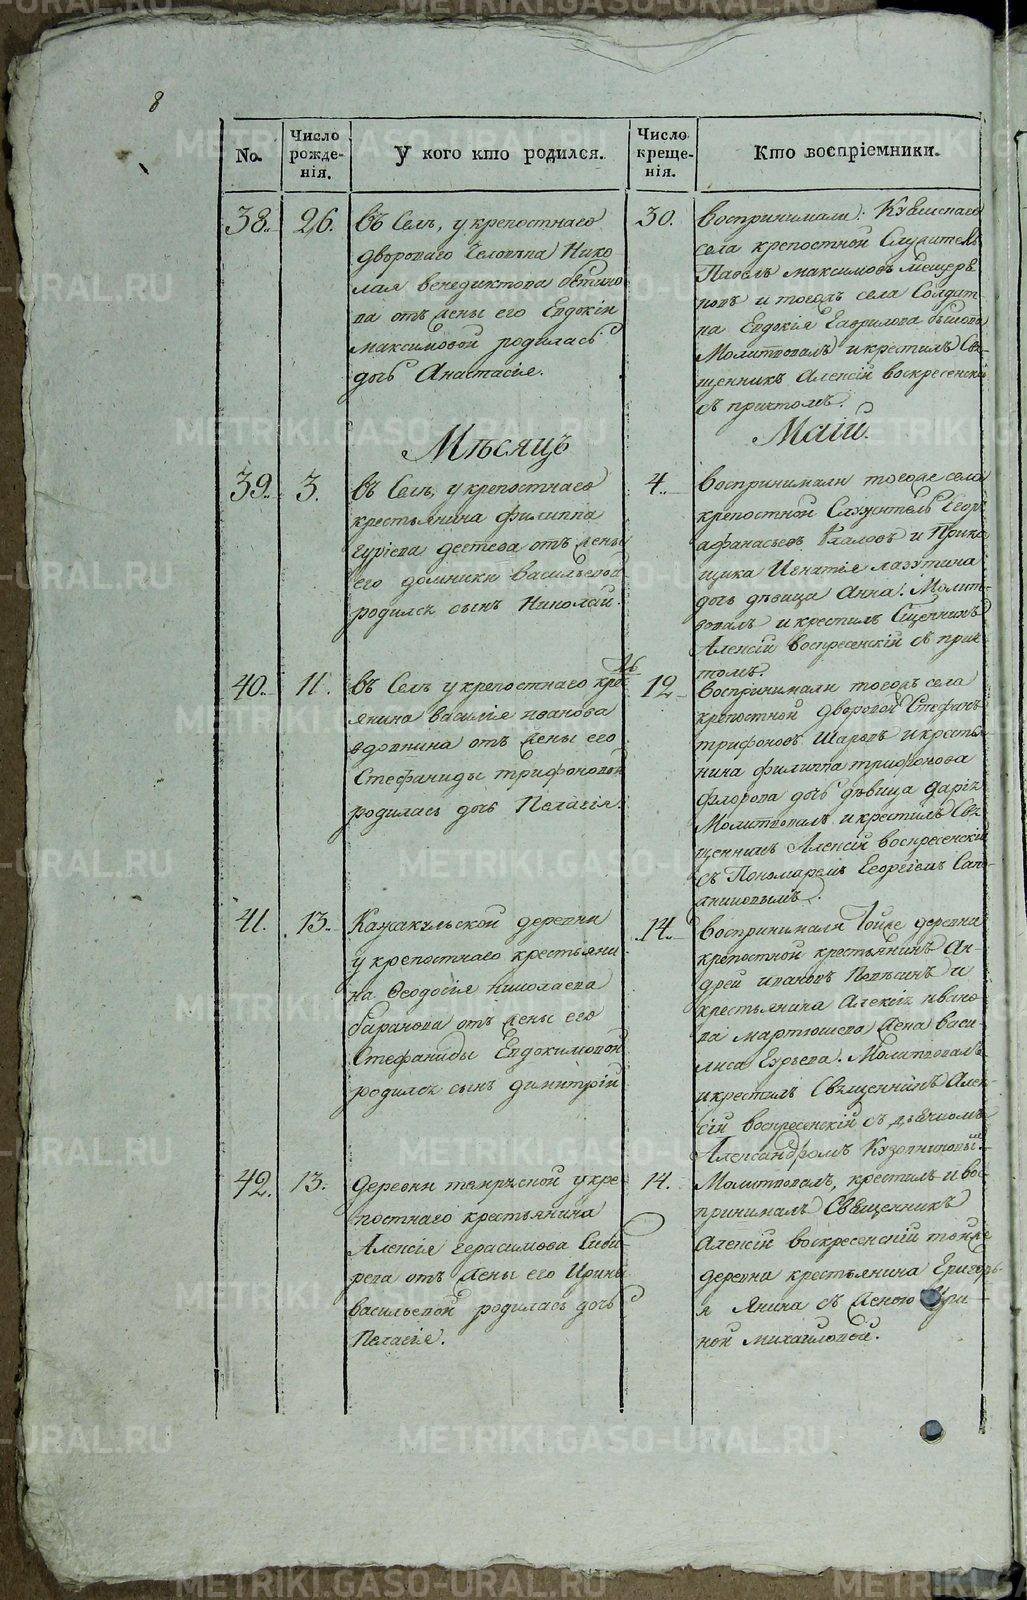 8
No.
Число рожде-нія.
У кого кто родился.
Число креще-нія.
Кто воспріемники.
38.
26.
въ Селѣ, у крепостнаго
двороваго человѣка Нико
лая венедиктова
ва отъ жены его Евдокіи
максимовой родилась
дочь Анастасія.
30.
воспринимали: Кувшскаго
села крепостной Служитель
Павелъ максимовъ мещеря
ковъ и тогожъ села Солдат-
ка Евдокія Гаврилова
Молитвовалъ и крестилъ Свя-
щенникъ Алексій воскресенскій
съ причтомъ.
Мѣсяцъ
Маій.
39.
3.
въ Селѣ, у крепостнаго
крестьянина филиппа
гуріева от жены
его домники васильевой
родился сынъ Николай.
4.
воспринимали тогоже села
крепостной Служитель Егоръ
афанасьевъ и Прика
щика Игнатія лазутина
дочь дѣвица Анна: Молит-
вовалъ и крестилъ Сщенникъ
Алексій воскресенскій съ прич-
томъ.
40.
11.
въ Селѣ у крепостнаго крес
янина василія иванова
вдовкина отъ жены его
Стефаниды трифоновой
родилась дочь Пелагія.
12
воспринимали тогожъ села
крепостной дворовой Стефанъ
трифоновъ и крестья
нина филиппа трифонова
фролова дочь дѣвица дарія
Молитвовалъ и крестилъ Свя
щенникъ Алексій воскресенскій
съ Пономаремъ Георгіемъ Сапо
жниковымъ.
41.
13.
деревни
у крепостнаго крестьяни
на Ѳеодосія николаева
баранова отъ жены его
Стефаниды Евдокимовой
родился сынъ димитрій
14.
воспринимали тойже деревни
крепостной крестьянинъ Ан-
дрей ивановъ и
крестьянина Алексія ивано
ва мартюшева жена васи-
лиса Гурьева: Молитвовалъ
и крестилъ Священникъ Алек-
сій воскресенскій съ дьячкомъ
Александромъ Кузовниковы.
42.
13.
деревни у кре
постнаго крестьянина
Алексія герасимова Сиби-
рева отъ жены его Ирины
васильевой родилась дочь
Пелагія.
14.
Молитвовалъ, крестилъ и вос
принималъ Священникъ
Алексій воскресенскій тойже
деревни крестьянина Григорь-
я янина съ женою Ири-
ной михайловой.
METRIKI.GASO-URAL.RU